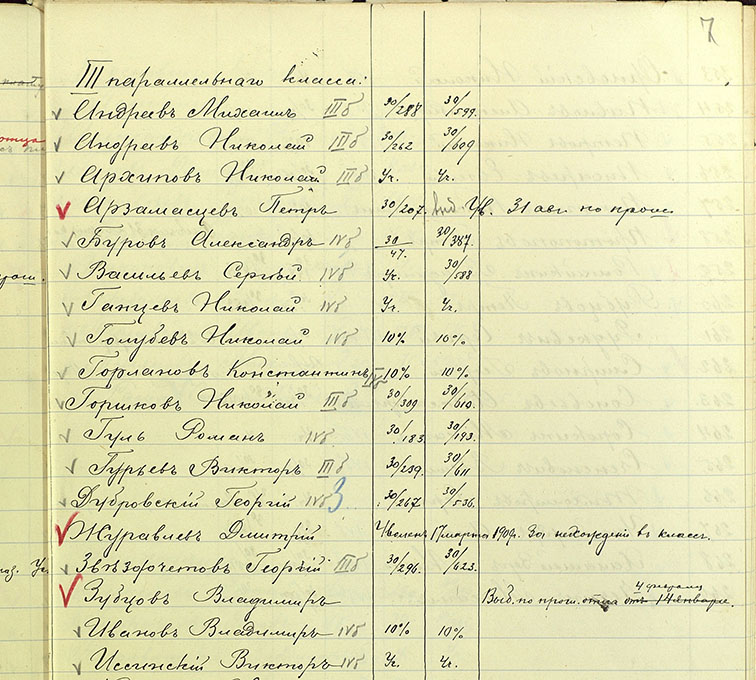 7
III параллельнаго класса:
Андреевъ Михаилъ IIIб 30/288 30/599.
Андреевъ Николай IIIб 30/262 30/609
Архиповъ Николай IIIб Уч. Уч.
Арзамасцевъ Петръ 30/207. Ув. 31 авг. по прош.
Буровъ Александръ IVб 30/47. 30/387.
Васильевъ Сергѣй IVб Уч. 30/588
Ганцевъ Николай IVб Уч. Уч.
Голубевъ Николай IVб 10% 10%
Горлановъ Константинъ IVб 10% 10%
Горшковъ Николай IIIб 30/309 30/610.
Гуль Романъ IVб 30/183 30/193.
Гурьевъ Викторъ IIIб 30/259. 30/611
Дубровскій Георгій IVб 3 30/267 30/536.
Журавлевъ Дмитрій Уволенъ 17 марта 1909г. За нехожденіе въ классъ.
Звѣздочетовъ Георгій IIIб 30/296. 30/623.
4 февраля
Зубцовъ Владимиръ Выб. по прош. отца отъ 14 января.
Ивановъ Владимиръ IVб 10% 10%
Иссинскій Викторъ IVб Уч. Уч.